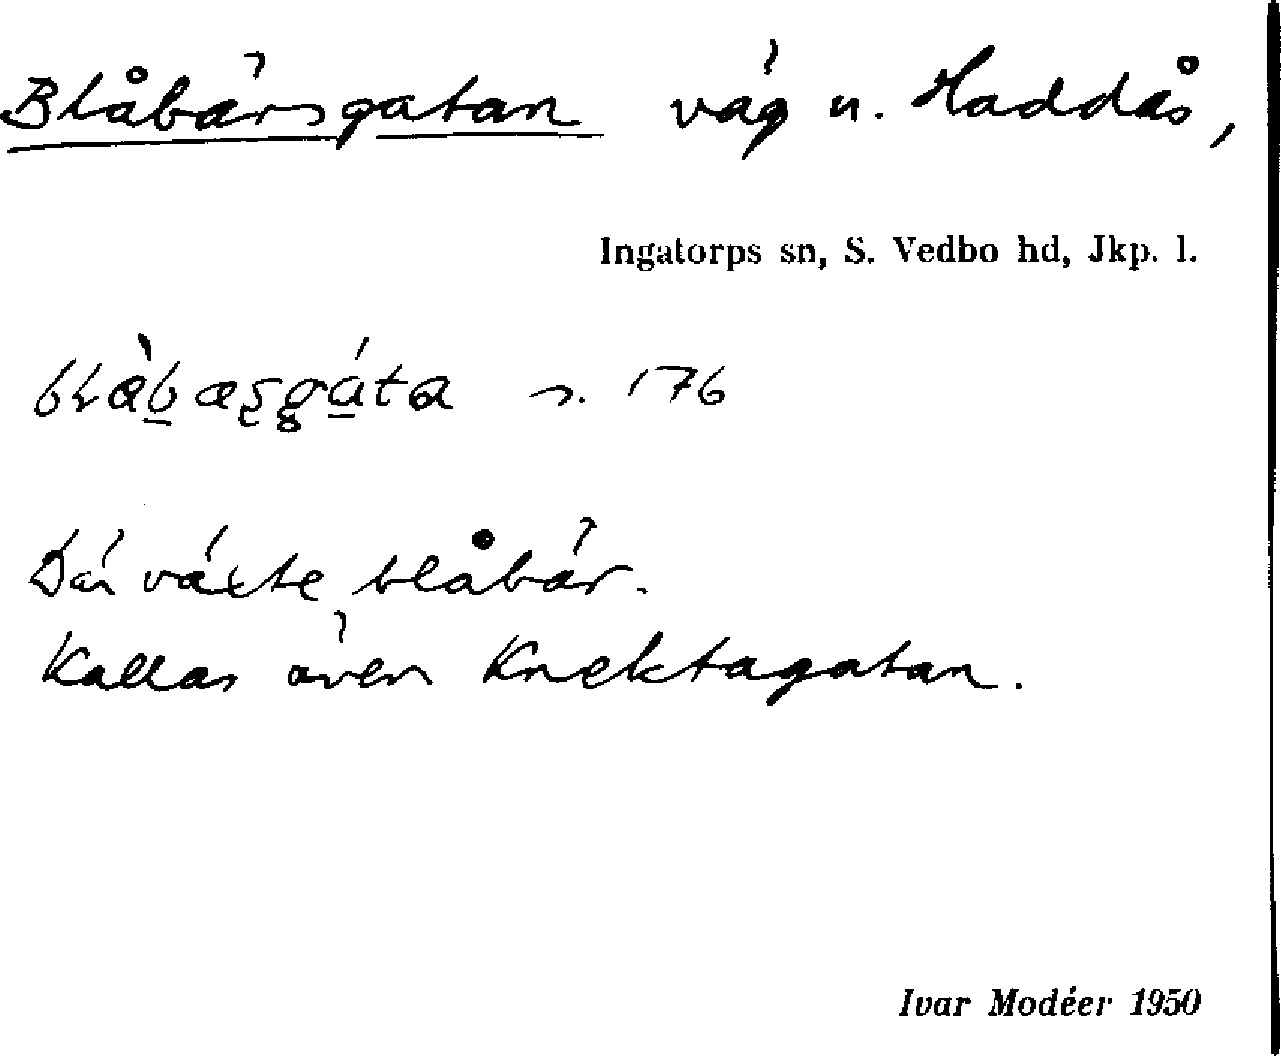 Blåbärsgatan väg u. Haddås,
Ingatorps sn, S. Vedbo hd, Jkp. l.
s. 176
Där växte blåbär.
Kallas även Knektagatan.
Ivar Modéer 1950